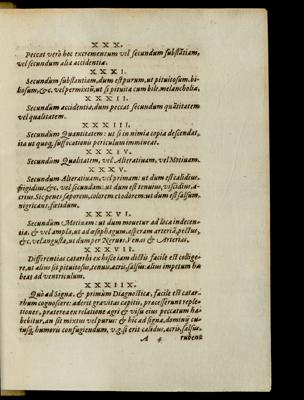 XXX.
Peccat verò hoc excrementum vel secundum substãtiam,
vel secundum alia accidentia.
XXXI.
Secundùm substantiam, dum est purum, ut pituitosum, bi-
liosum, &c. vel permixtũ, ut si pituita cum bile, melancholia.
XXXII.
Secundùm accidentia, dum peccat secundum quãtitatem
vel qualitatem.
XXXIII.
Secundùm Quantitatem: ut si in nimia copia descendat,
ita ut quoq; suffocationis periculum immineat.
XXXIV.
Secundùm Qualitatem, vel Alterativam, vel Motivam.
XXXV.
Secundùm Alterativam, vel primam: ut dum est calidus,
frigidius, &c. vel secundam: ut dum est tenuius, viscidius, a-
crius. Sic penes saporem, colorem et odorem: ut dum est salsum,
nigricans, fœtidum.
XXXVI.
Secundùm Motivam: ut dum movetur ad loca indecen-
tia, & vel ampla, ut ad œsophagum, asperam arteriã, pectus,
&c. vel angusta, ut dum per Nervos, Venas & Arterias.
XXXVII.
Differentias catarrhi ex hisce iam dictis facile est collige-
re, ut alius sit pituitosus, tenuis, acris, salsus: alius impetum ha-
beat ad ventriculum.
XXXIIX.
Quò ad Signa, & primùm Diagnostica, facile est catar-
rhum cognoscere: aderit gravitas capitis, præcesserunt reple-
tiones, præterea en relatione ægri & visu eius peccatum ha-
bebitur, an sit mixtus vel purus: & hic ad signa, dominij cu-
iusq; humoris confugiendum, v.g. si erit calidus, acris, salsus,
A 4 rubens